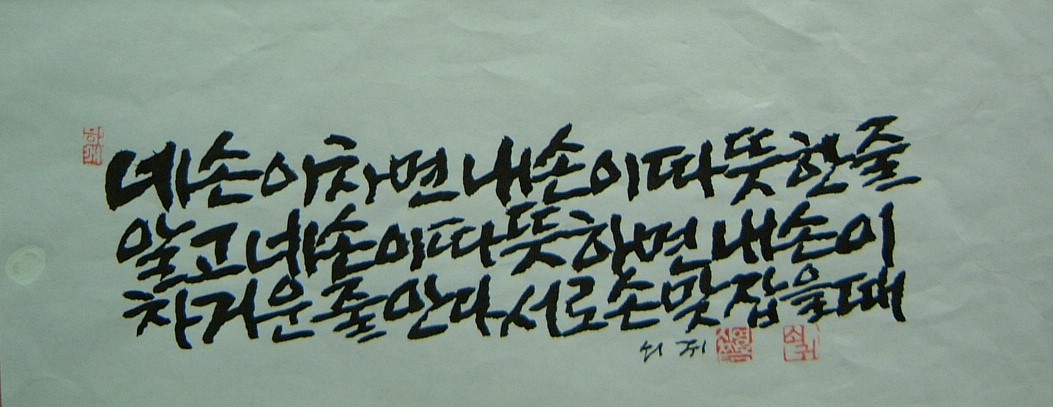 네 손이 차면 내 손이 따뜻한 줄
알고 네 손이 따뜻하면 내 손이
차거운 줄 안다 서로 손 맞잡을 때
쇠귀